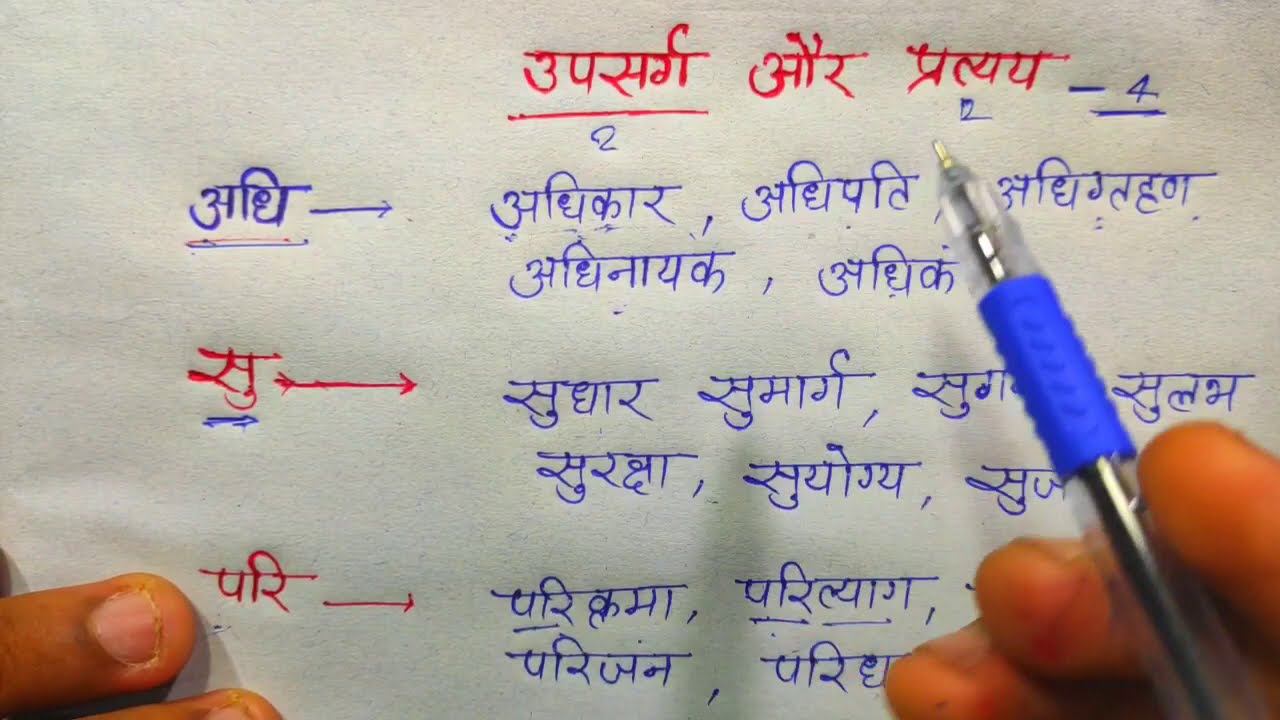 उपसर्ग और प्रत्यय - 4
2 2
अधि → अधिकार, अधिपति, अधिग्रहण
अधिनायक, अधिक
सु → सुधार सुमार्ग, सुलभ
सुरक्षा, सुयोग्य,
परि → परिक्रमा, परित्याग,
परिजन,